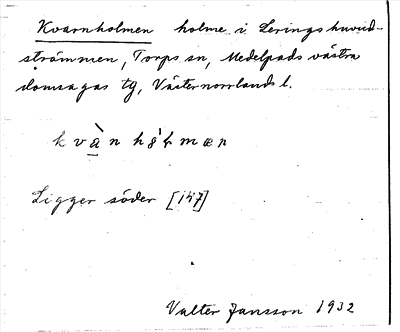 Kvarnholmen holme i Leringshuvud-
strömmen, Torps sn, Medelpads västra
domsagas tg, Västernorrlands l.
Ligger söder [147]
Valter Jansson 1932